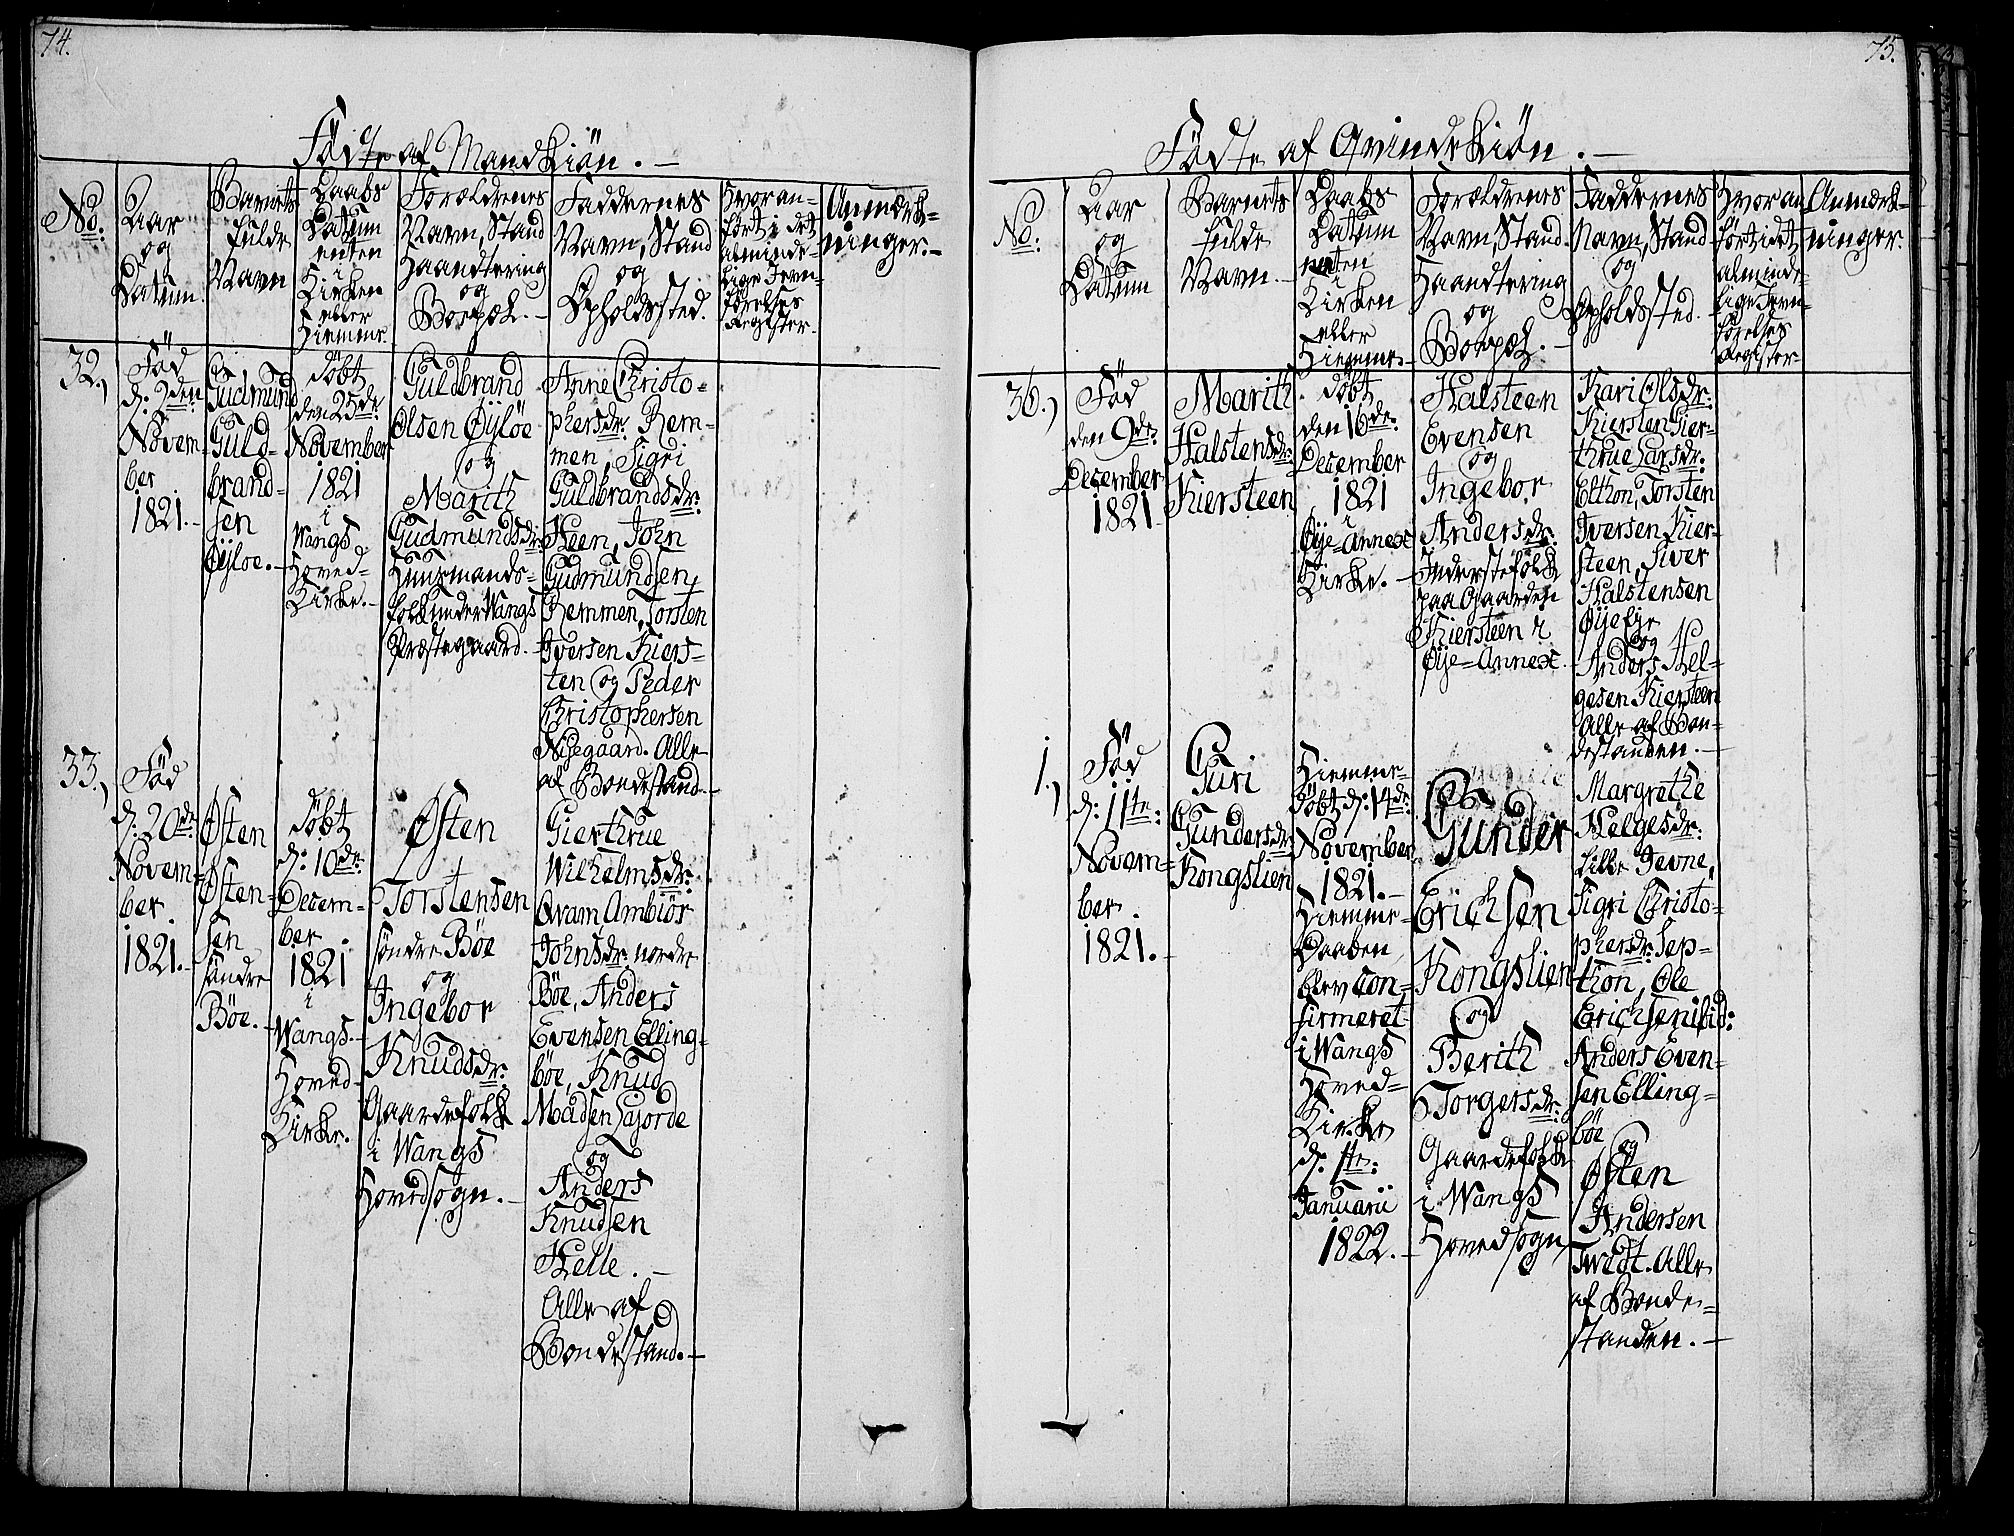 74.
Födte af Mandkiön. —
No:
Aar
og
Datum.
Barnets
fulde
Navn
Daabs
Datum
enten
i
Kirken
eller
Hiemme.
Forældrenes
Navn, Stand
Haandtering
og
Bopæl. —
Faddernes
Navn, Stand
og
Opholdssted.
Hvor an-
ført i det
alminde-
lige Jevn-
förelses
Register.
Anmærk-
ninger. —
32.,
Föd
d: 2den
Novem-
ber
1821. —
Gudmund
Guld-
brand-
sen
Øyloe. —
döbt
den 25de
November
1821
i
Wangs
Hoved-
Kirke. —
Guldbrand
Olsen Øylöe
og
Marith
Gudmundsdr:
Huusmands-
folk under Wangs
Præstegaard. —
Anne Christo-
phersdr: Rem-
men, Sigri
Guldbrandsdr:
Heen, John
Gudmundsen
Remmen, Torsten
Iversen Kiers-
ten og Peder
Christophersen
Nÿegaard. Alle
af Bondestand. —
33.,
Föd
d: 20de
Novem-
ber.
1821. —
Østen
Østen-
sen
söndre
Böe. —
döbt
d: 10de:
Decem-
ber.
1821
i
Wangs —
Hoved-
Kirke.
Østen
Torstensen
söndre Böe
og
Ingebor
Knudsdr:
Gaardefolk
i Wangs
Hovedsogn. —
Gierthrue
Wilhelmsdr:
Qvam, Ambiör
Johnsdr: nordre
Böe, Anders
Evensen Elling-
böe, Knud
Madsen Gjorde
og
Anders
Knudsen
Helle. —
Alle af
Bondestand. —
75.
Födte af Qvindekiön. —
No:
Aar
og
Datum
Barnets
fulde
Navn. —
Daabs
Datum
enten
i
Kirken
eller
Hiemme. —
Forældrenes
Navn, Stand
Haandtering
og
Bopæl. —
Faddernes
Navn, Stand
og
Opholdssted.
Hvor an-
fört i det
alminde-
lige Jevn-
förelses
Register
Anmærk-
ninger.
36.,
Föd
den 9de:
December
1821
Marith
Halstensdr:
Kiersteen
döbt
den 16de:
December
1821
i
Øÿe=Annex
Kirke. —
Halsteen
Evensen
og
Ingebor
Andersdr:
Inderstefolk
paa Gaarden
Kiersteen i
Øÿe=Annex.
Kari Olsdr:
Kiersten Gier-
thrue Larsdr:
Elthon, Torsten
Iversen Kier-
steen, Siver
Halstensen
Øÿe Eje
og
Anders Hel-
gesen Kiersteen
Alle af Bon-
destanden. —
1.,
Föd
d: 11te:
Novem-
ber.
1821. —
Guri
Gundersdr:
Kongslien
Hiemme-
döbt d: 14de:
November
1821. —
Hiemme-
Daaben
blev con-
firmeret
i Wangs
Hoved-
Kirke
d: 1te:
Januarii
1822. —
Gunder
Erichsen
Kongslien
og
Berith
Torgersdr:
Gaardefolk
i Wangs
Hovedsogn
Margrethe
Helgesdr:
lille Jevne,
Sigri Christo-
phersdr: Sep-
thon, Ole
Erichsen ibid:
Anders Even-
sen Elling-
böe
og
Østen
Andersen
Twedt. Alle
af Bonde-
standen. —